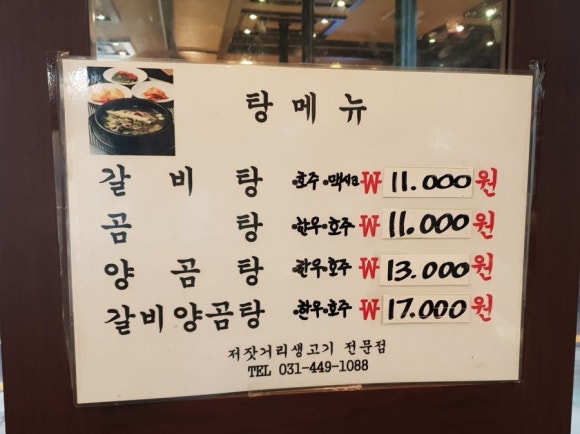 탕메뉴
갈비탕 •호주•멕시코 ₩ 11.000원
곰탕 •한우•호주 ₩ 11.000원
양곰탕 •한우•호주 ₩ 13.000원
갈비양곰탕 •한우•호주 ₩ 17.000원
저잣거리생고기 전문점
TEL 031-449-1088